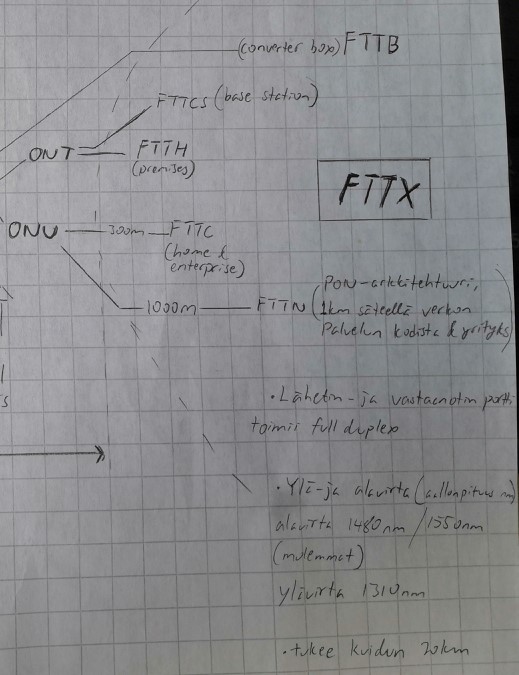 (converter box) FTTB
FTTCS (base station)
ONT FTTH
(premises)
FTTX
ONU 300m FTTC
(home &
enterprise)
1000m FTTN (PON-arkkitehtuuri,
1km säteellä verkon
Palvelun kodista & yrityks)
• Lähetin- ja vastaanotin portti
toimii full duplex
• Ylä- ja alavirta (aallonpituus m)
alavirta 1480nm / 1550nm
(molemmat)
ylävirta 1310nm
• tukee kuidun 20km